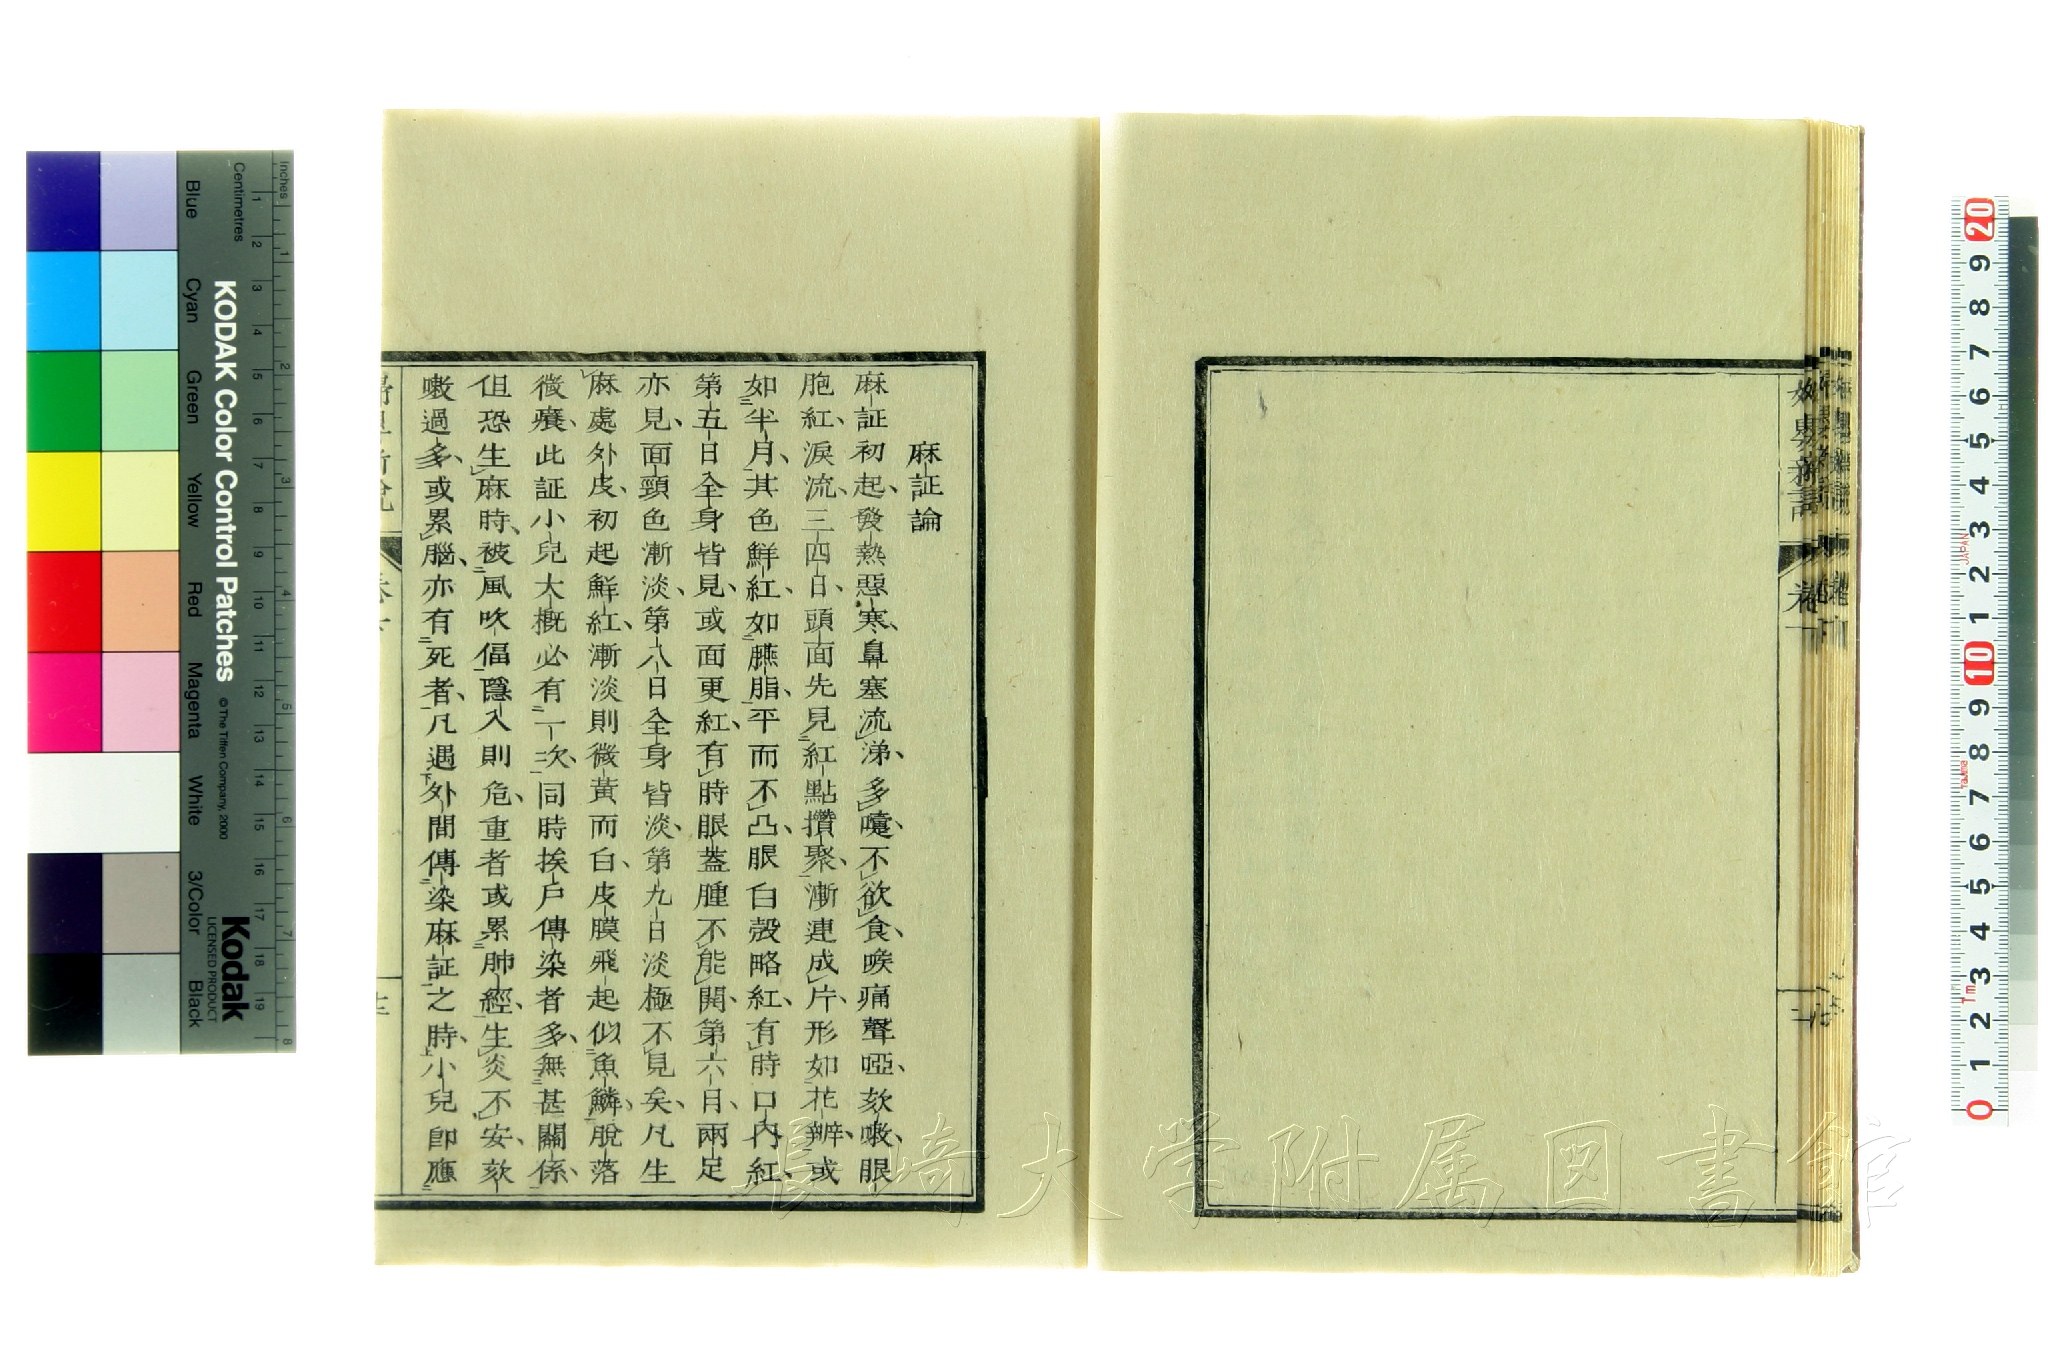 麻証論
麻証初起、發熱惡寒、鼻塞流涕、多嚏、不欲食、喉痛聲啞、欬嗽、眼
胞紅、淚流、三四日、頭面先見紅點攢聚、漸連成片、形如花辦、或
如半月、其色鮮紅、如臙脂、平而不凸、眼白殼略紅、有時口內紅、
第五日全身皆見、或面更紅、有時眼蓋腫不能開、第六日、兩足
亦見、面頸色漸淡、第八日全身皆淡、第九日淡極不見矣、凡生
麻處外皮、初起鮮紅、漸淡則微黃而白、皮膜飛起似魚鱗、脫落
微癢、此証小兒大概必有一次、同時挨戶傳染者多、無甚關係、
但恐生麻時、被風吹偪隱入則危、重者或累肺經、生炎不安、欬
嗽過多、或累腦、亦有死者、凡遇外間傳染麻証之時、小兒即應
婦嬰新說
KODAK Color Control Patches
© The Tiffen Company, 2000
Kodak
LICENSED PRODUCT
Inches
Centimetres
Blue
Cyan
Green
Yellow
Red
Magenta
White
3/Color
Black
1 2 3 4 5 6 7 8 9 10 11 12 13 14 15 16 17 18 19
1 2 3 4 5 6 7 8
20 9 8 7 6 5 4 3 2 1 10 9 8 7 6 5 4 3 2 1 0
JAPAN
Tajima
長崎大学附属図書館